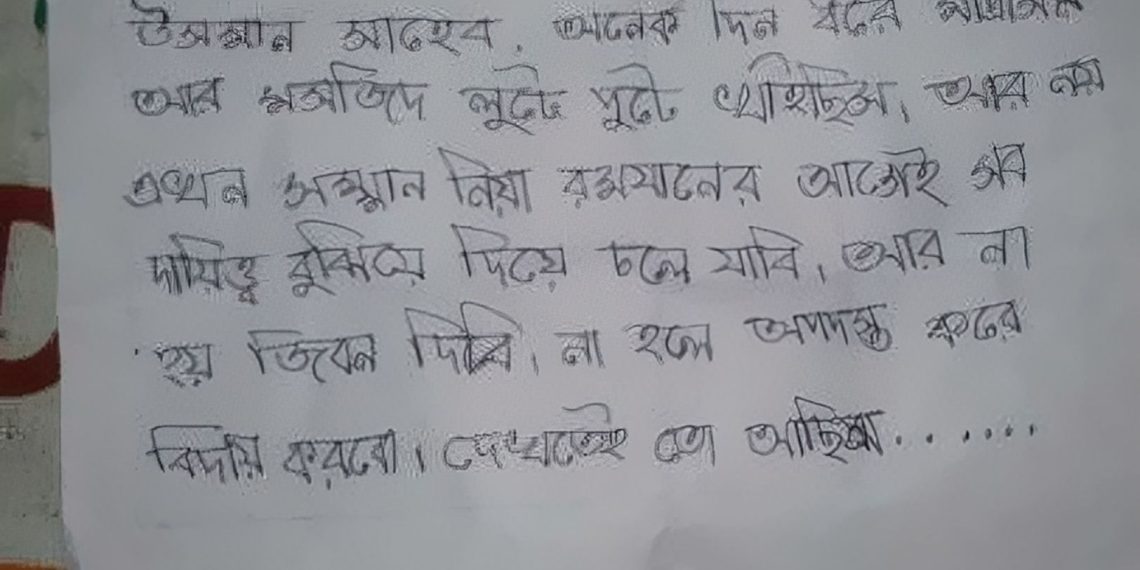 উসমান সাহেব. অনেক দিন ধরে মাদ্রাসা
আর মসজিদে লুটে পুটে খাইছিস, আর নয়
এখন সম্মান নিয়া রমযানের আগেই সব
দায়িত্ব বুঝিয়ে দিয়ে চলে যাবি, আর না
হয় জিবন দিবি, না হলে অপদস্ত করে
বিদায় করবো। দেখতেই তো আছিস.......